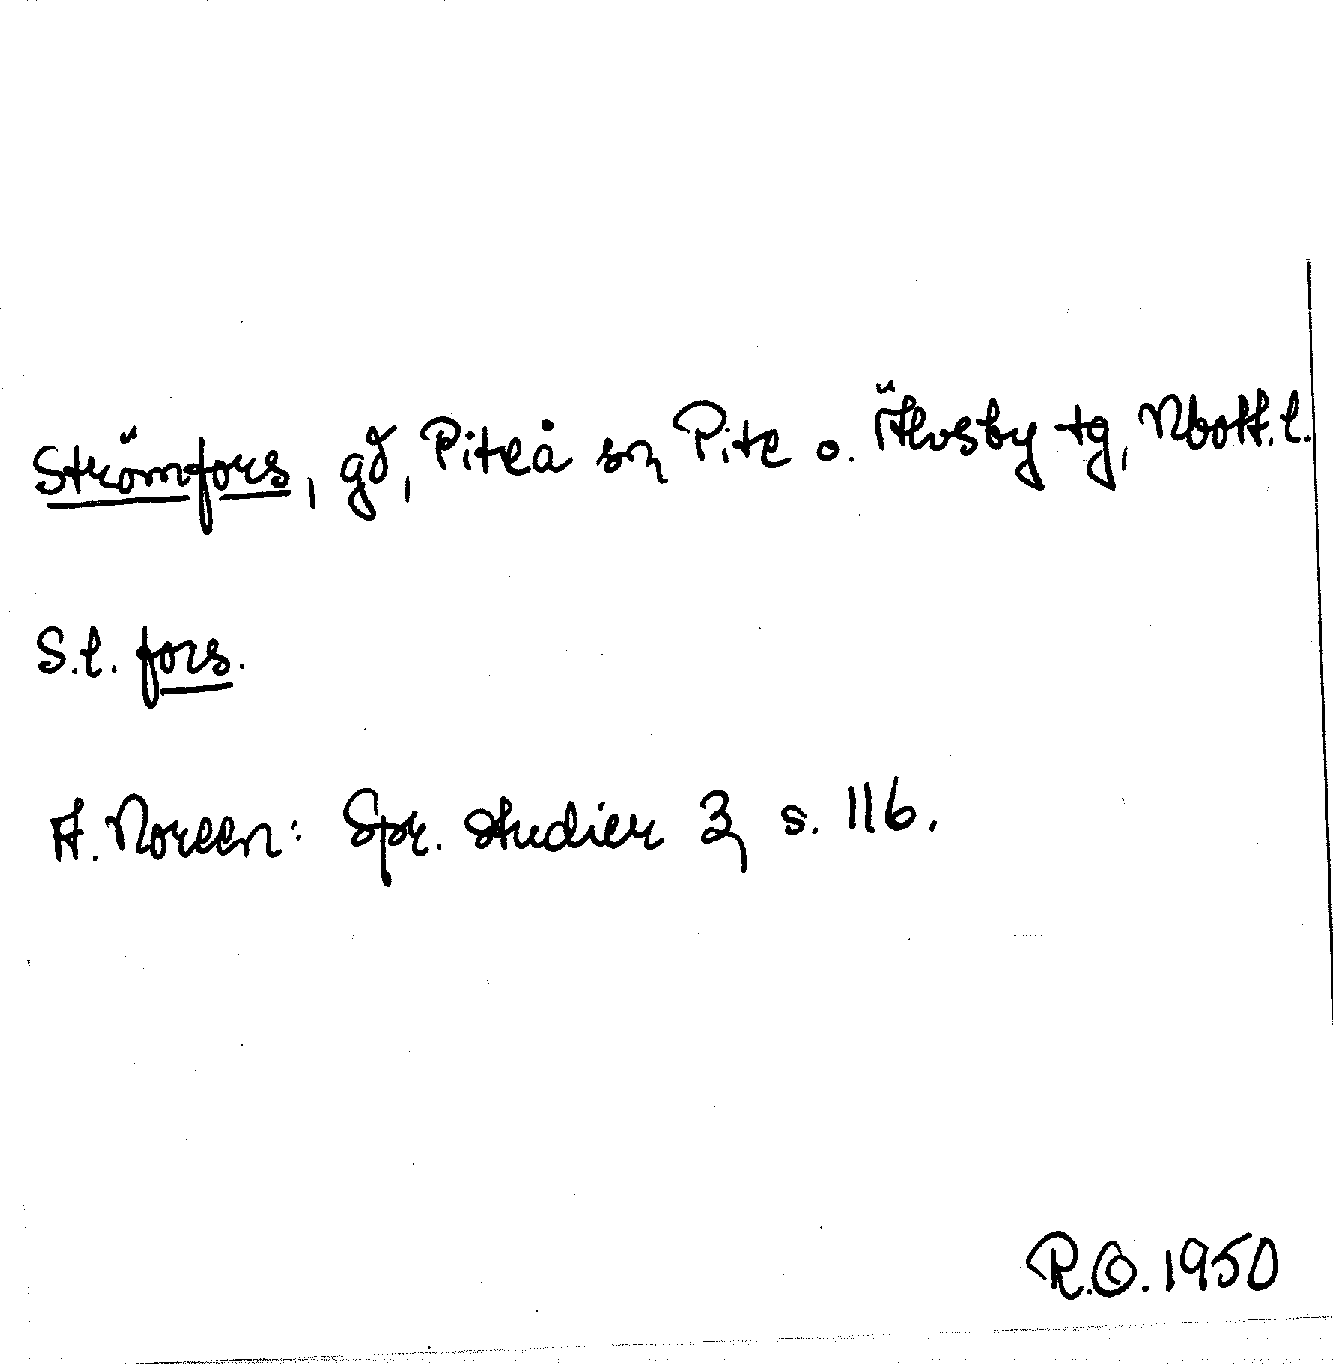 Strömfors, gd, Piteå sn Pite o. Älvsby tg, Nbott. l.
S.l. fors.
A. Noreen: Spr. studier 3, s. 116.
R.O. 1950